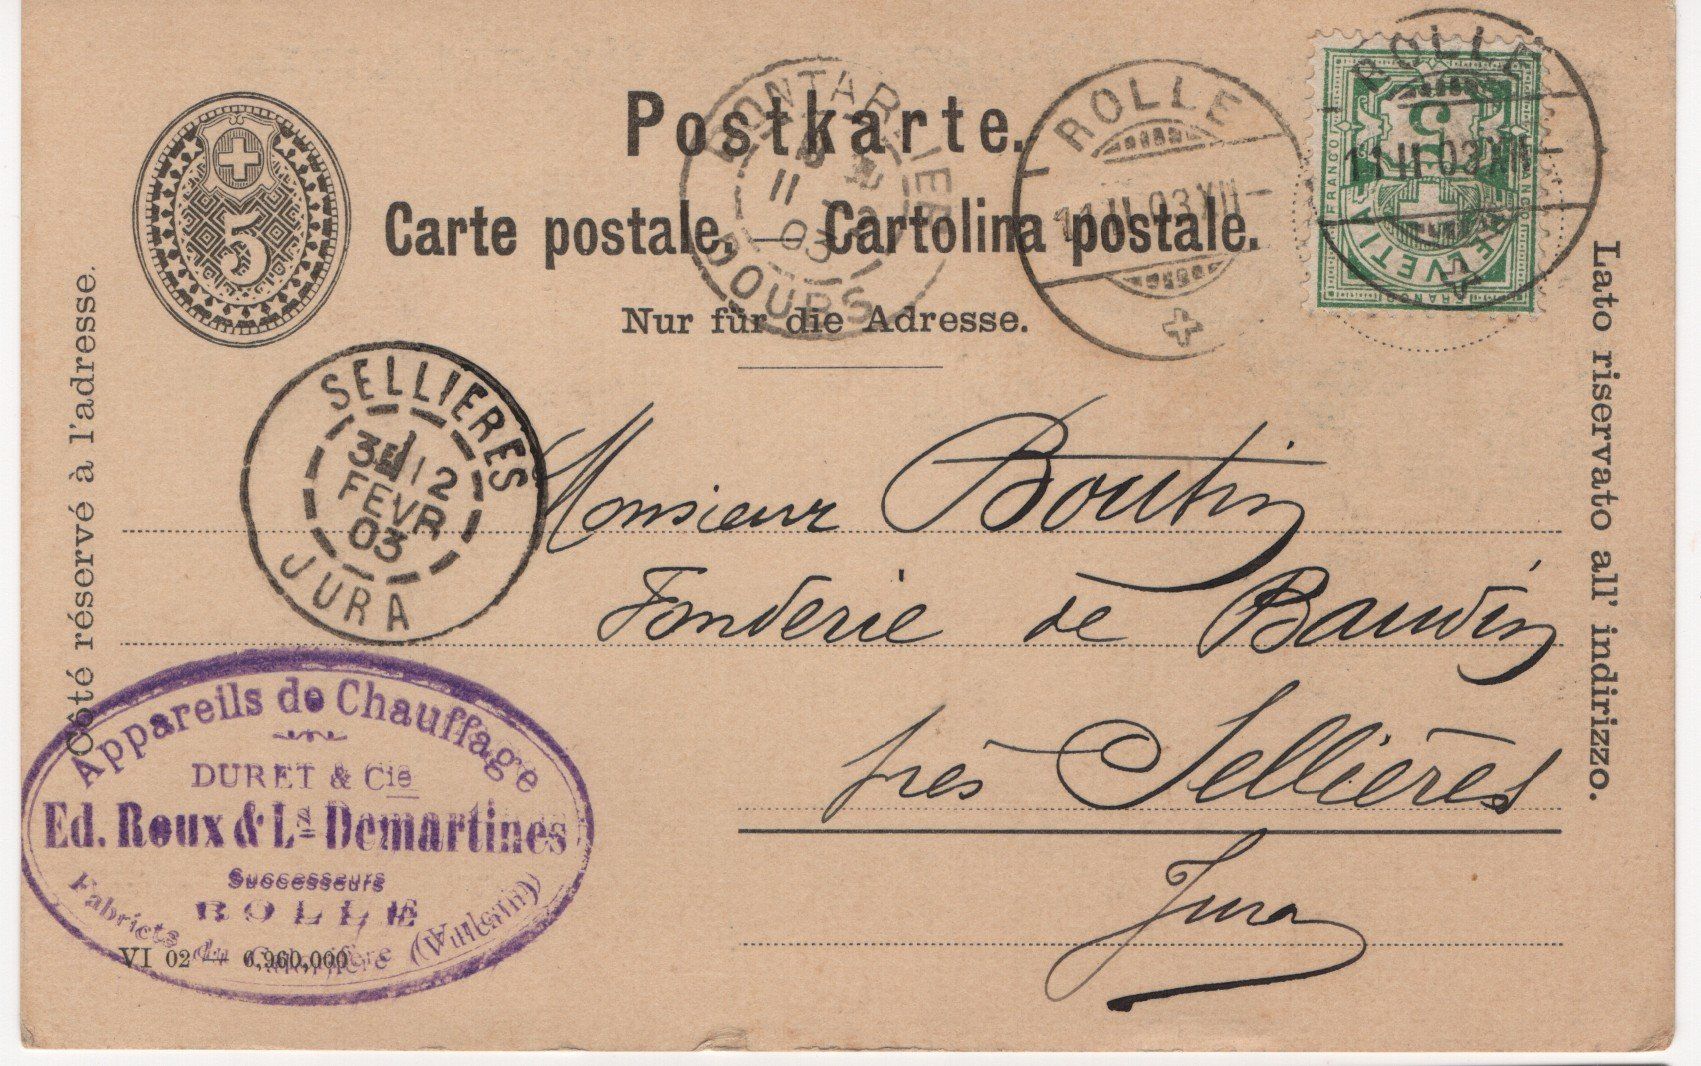 5
Postkarte.
Carte postale. — Cartolina postale.
Nur für die Adresse.
Côté réservé à l'adresse.
Lato riservato all' indirizzo.
PONTARLIER
11
03
DOUBS
ROLLE
11.II.03.XII
ROLLE
11.II.03.XII
FRANCO
HELVETIA
5
SELLIERES
3E 12
FEVR
03
JURA
Monsieur Boutin
Fonderie de Baudin
près Sellières
Jura
Appareils de Chauffage
DURET & Cie
Ed. Roux & Ls Demartines
Successeurs
ROLLE
Fabricts du Calorifère
VI 02 — 6,960,000